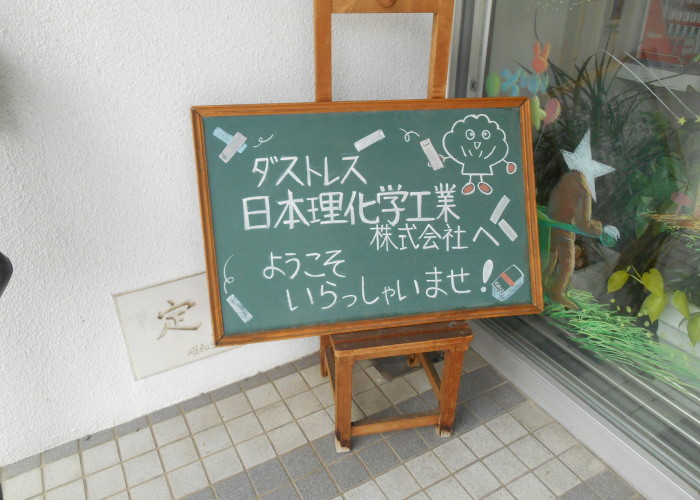 ダストレス
日本理化学工業
株式会社へ
ようこそ
いらっしゃいませ!
定